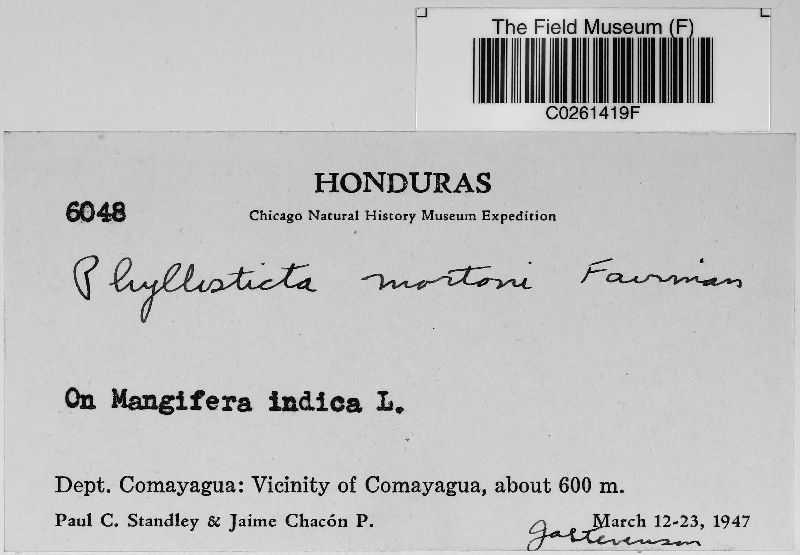 The Field Museum (F)
C0261419F
HONDURAS
6048
Chicago Natural History Museum Expedition
Phyllosticta mortoni Fairman
On Mangifera indica L.
Dept. Comayagua: Vicinity of Comayagua, about 600 m.
Paul C. Standley & Jaime Chacón P.
March 12-23, 1947
JaStevenson